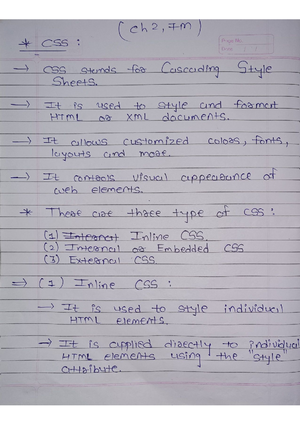 (ch 2, 7M)
* CSS :
→ CSS stands for Cascading Style
Sheets.
→ It is used to style and format
HTML or XML documents.
→ It allows customized colors, fonts,
layouts and more.
→ It controls visual appearance of
web elements.
* There are three type of CSS :
(1) Inline CSS.
(2) Internal or Embedded CSS
(3) External CSS.
⇒ (1) Inline CSS :
→ It is used to style individual
HTML elements.
→ It is applied directly to individual
HTML elements using the "style"
attribute.